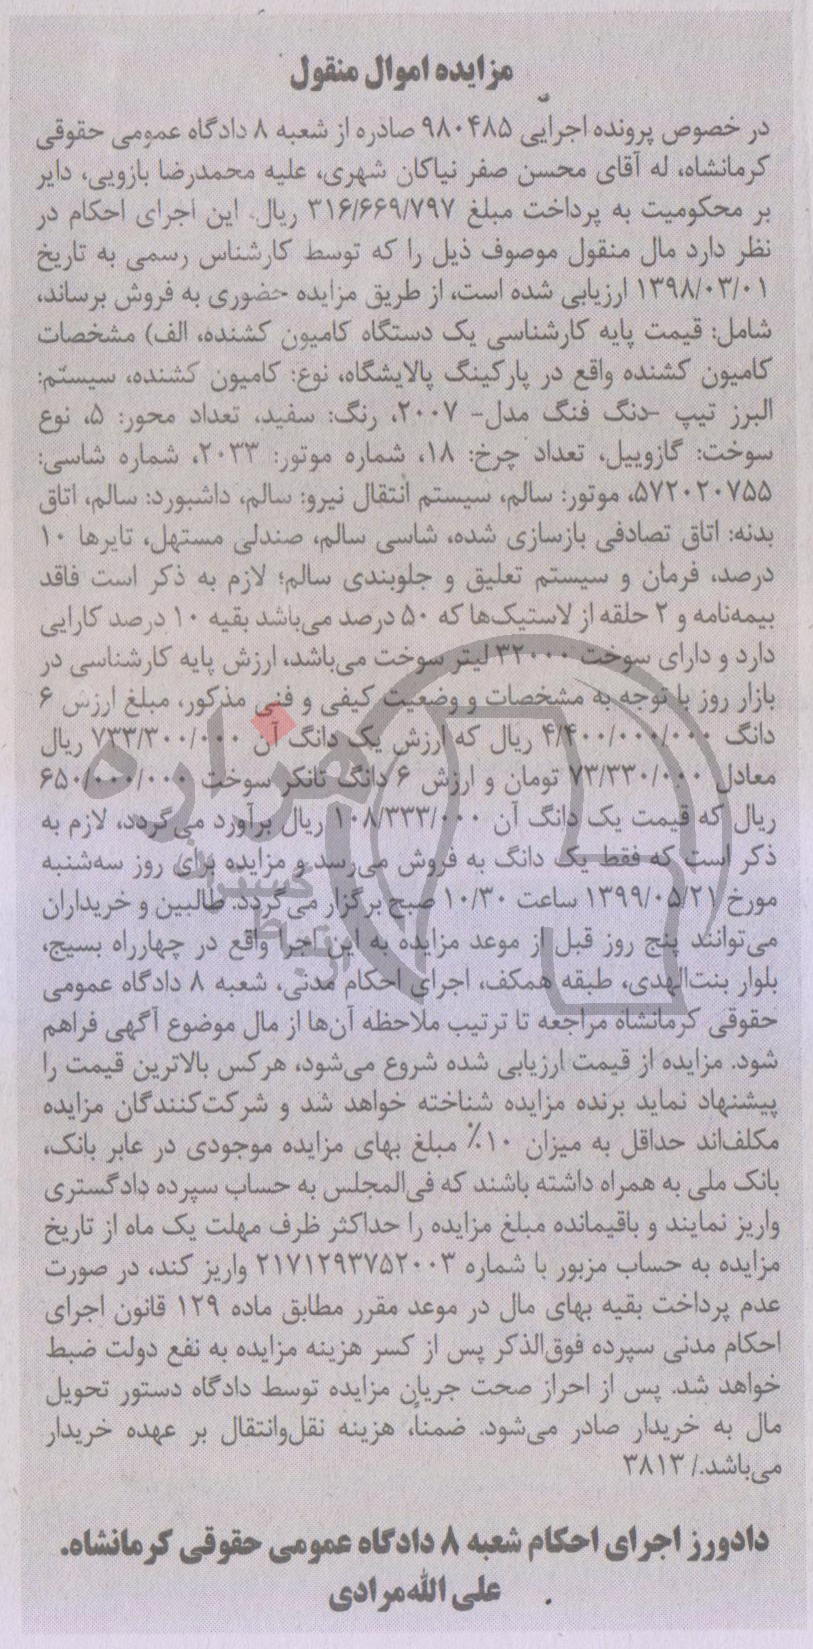 مزایده اموال منقول
در خصوص پرونده اجرایی ۹۸۰۴۸۵ صادره از شعبه ۸ دادگاه عمومی حقوقی
کرمانشاه، له آقای محسن صفر نیاکان شهری، علیه محمدرضا بازویی، دایر
بر محکومیت به پرداخت مبلغ ۳۱۶/۶۶۹/۷۹۷ ریال. این اجرای احکام در
نظر دارد مال منقول موصوف ذیل را که توسط کارشناس رسمی به تاریخ
۱۳۹۸/۰۳/۰۱ ارزیابی شده است، از طریق مزایده حضوری به فروش برساند،
شامل: قیمت پایه کارشناسی یک دستگاه کامیون کشنده، الف) مشخصات
کامیون کشنده واقع در پارکینگ پالایشگاه، نوع: کامیون کشنده، سیستم:
البرز تیپ -دنگ فنگ مدل- ۲۰۰۷، رنگ: سفید، تعداد محور: ۵، نوع
سوخت: گازوییل، تعداد چرخ: ۱۸، شماره موتور: ۲۰۳۳، شماره شاسی:
۵۷۲۰۲۰۷۵۵، موتور: سالم، سیستم انتقال نیرو: سالم، داشبورد: سالم، اتاق
بدنه: اتاق تصادفی بازسازی شده، شاسی سالم، صندلی مستهل، تایرها ۱۰
درصد، فرمان و سیستم تعلیق و جلوبندی سالم؛ لازم به ذکر است فاقد
بیمه‌نامه و ۲ حلقه از لاستیک‌ها که ۵۰ درصد می‌باشد بقیه ۱۰ درصد کارایی
دارد و دارای سوخت ۳۲۰۰۰ لیتر سوخت می‌باشد، ارزش پایه کارشناسی در
بازار روز با توجه به مشخصات و وضعیت کیفی و فنی مذکور، مبلغ ارزش ۶
دانگ ۴/۴۰۰/۰۰۰/۰۰۰ ریال که ارزش یک دانگ آن ۷۳۳/۳۰۰/۰۰۰ ریال
معادل ۷۳/۳۳۰/۰۰۰ تومان و ارزش ۶ دانگ تانکر سوخت ۶۵۰/۰۰۰/۰۰۰
ریال که قیمت یک دانگ آن ۱۰۸/۳۳۳/۰۰۰ ریال برآورد می‌گردد، لازم به
ذکر است که فقط یک دانگ به فروش می‌رسد و مزایده برای روز سه‌شنبه
مورخ ۱۳۹۹/۰۵/۲۱ ساعت ۱۰/۳۰ صبح برگزار می‌گردد. طالبین و خریداران
می‌توانند پنج روز قبل از موعد مزایده به این اجرا واقع در چهارراه بسیج،
بلوار بنت‌الهدی، طبقه همکف، اجرای احکام مدنی، شعبه ۸ دادگاه عمومی
حقوقی کرمانشاه مراجعه تا ترتیب ملاحظه آن‌ها از مال موضوع آگهی فراهم
شود. مزایده از قیمت ارزیابی شده شروع می‌شود، هرکس بالاترین قیمت را
پیشنهاد نماید برنده مزایده شناخته خواهد شد و شرکت‌کنندگان مزایده
مکلف‌اند حداقل به میزان ۱۰٪ مبلغ بهای مزایده موجودی در عابر بانک،
بانک ملی به همراه داشته باشند که فی‌المجلس به حساب سپرده دادگستری
واریز نمایند و باقیمانده مبلغ مزایده را حداکثر ظرف مهلت یک ماه از تاریخ
مزایده به حساب مزبور با شماره ۲۱۷۱۲۹۳۷۵۲۰۰۳ واریز کند، در صورت
عدم پرداخت بقیه بهای مال در موعد مقرر مطابق ماده ۱۲۹ قانون اجرای
احکام مدنی سپرده فوق‌الذکر پس از کسر هزینه مزایده به نفع دولت ضبط
خواهد شد. پس از احراز صحت جریان مزایده توسط دادگاه دستور تحویل
مال به خریدار صادر می‌شود. ضمناً، هزینه نقل‌وانتقال بر عهده خریدار
می‌باشد./ ۳۸۱۳
دادورز اجرای احکام شعبه ۸ دادگاه عمومی حقوقی کرمانشاه.
علی الله‌مرادی
هزاره